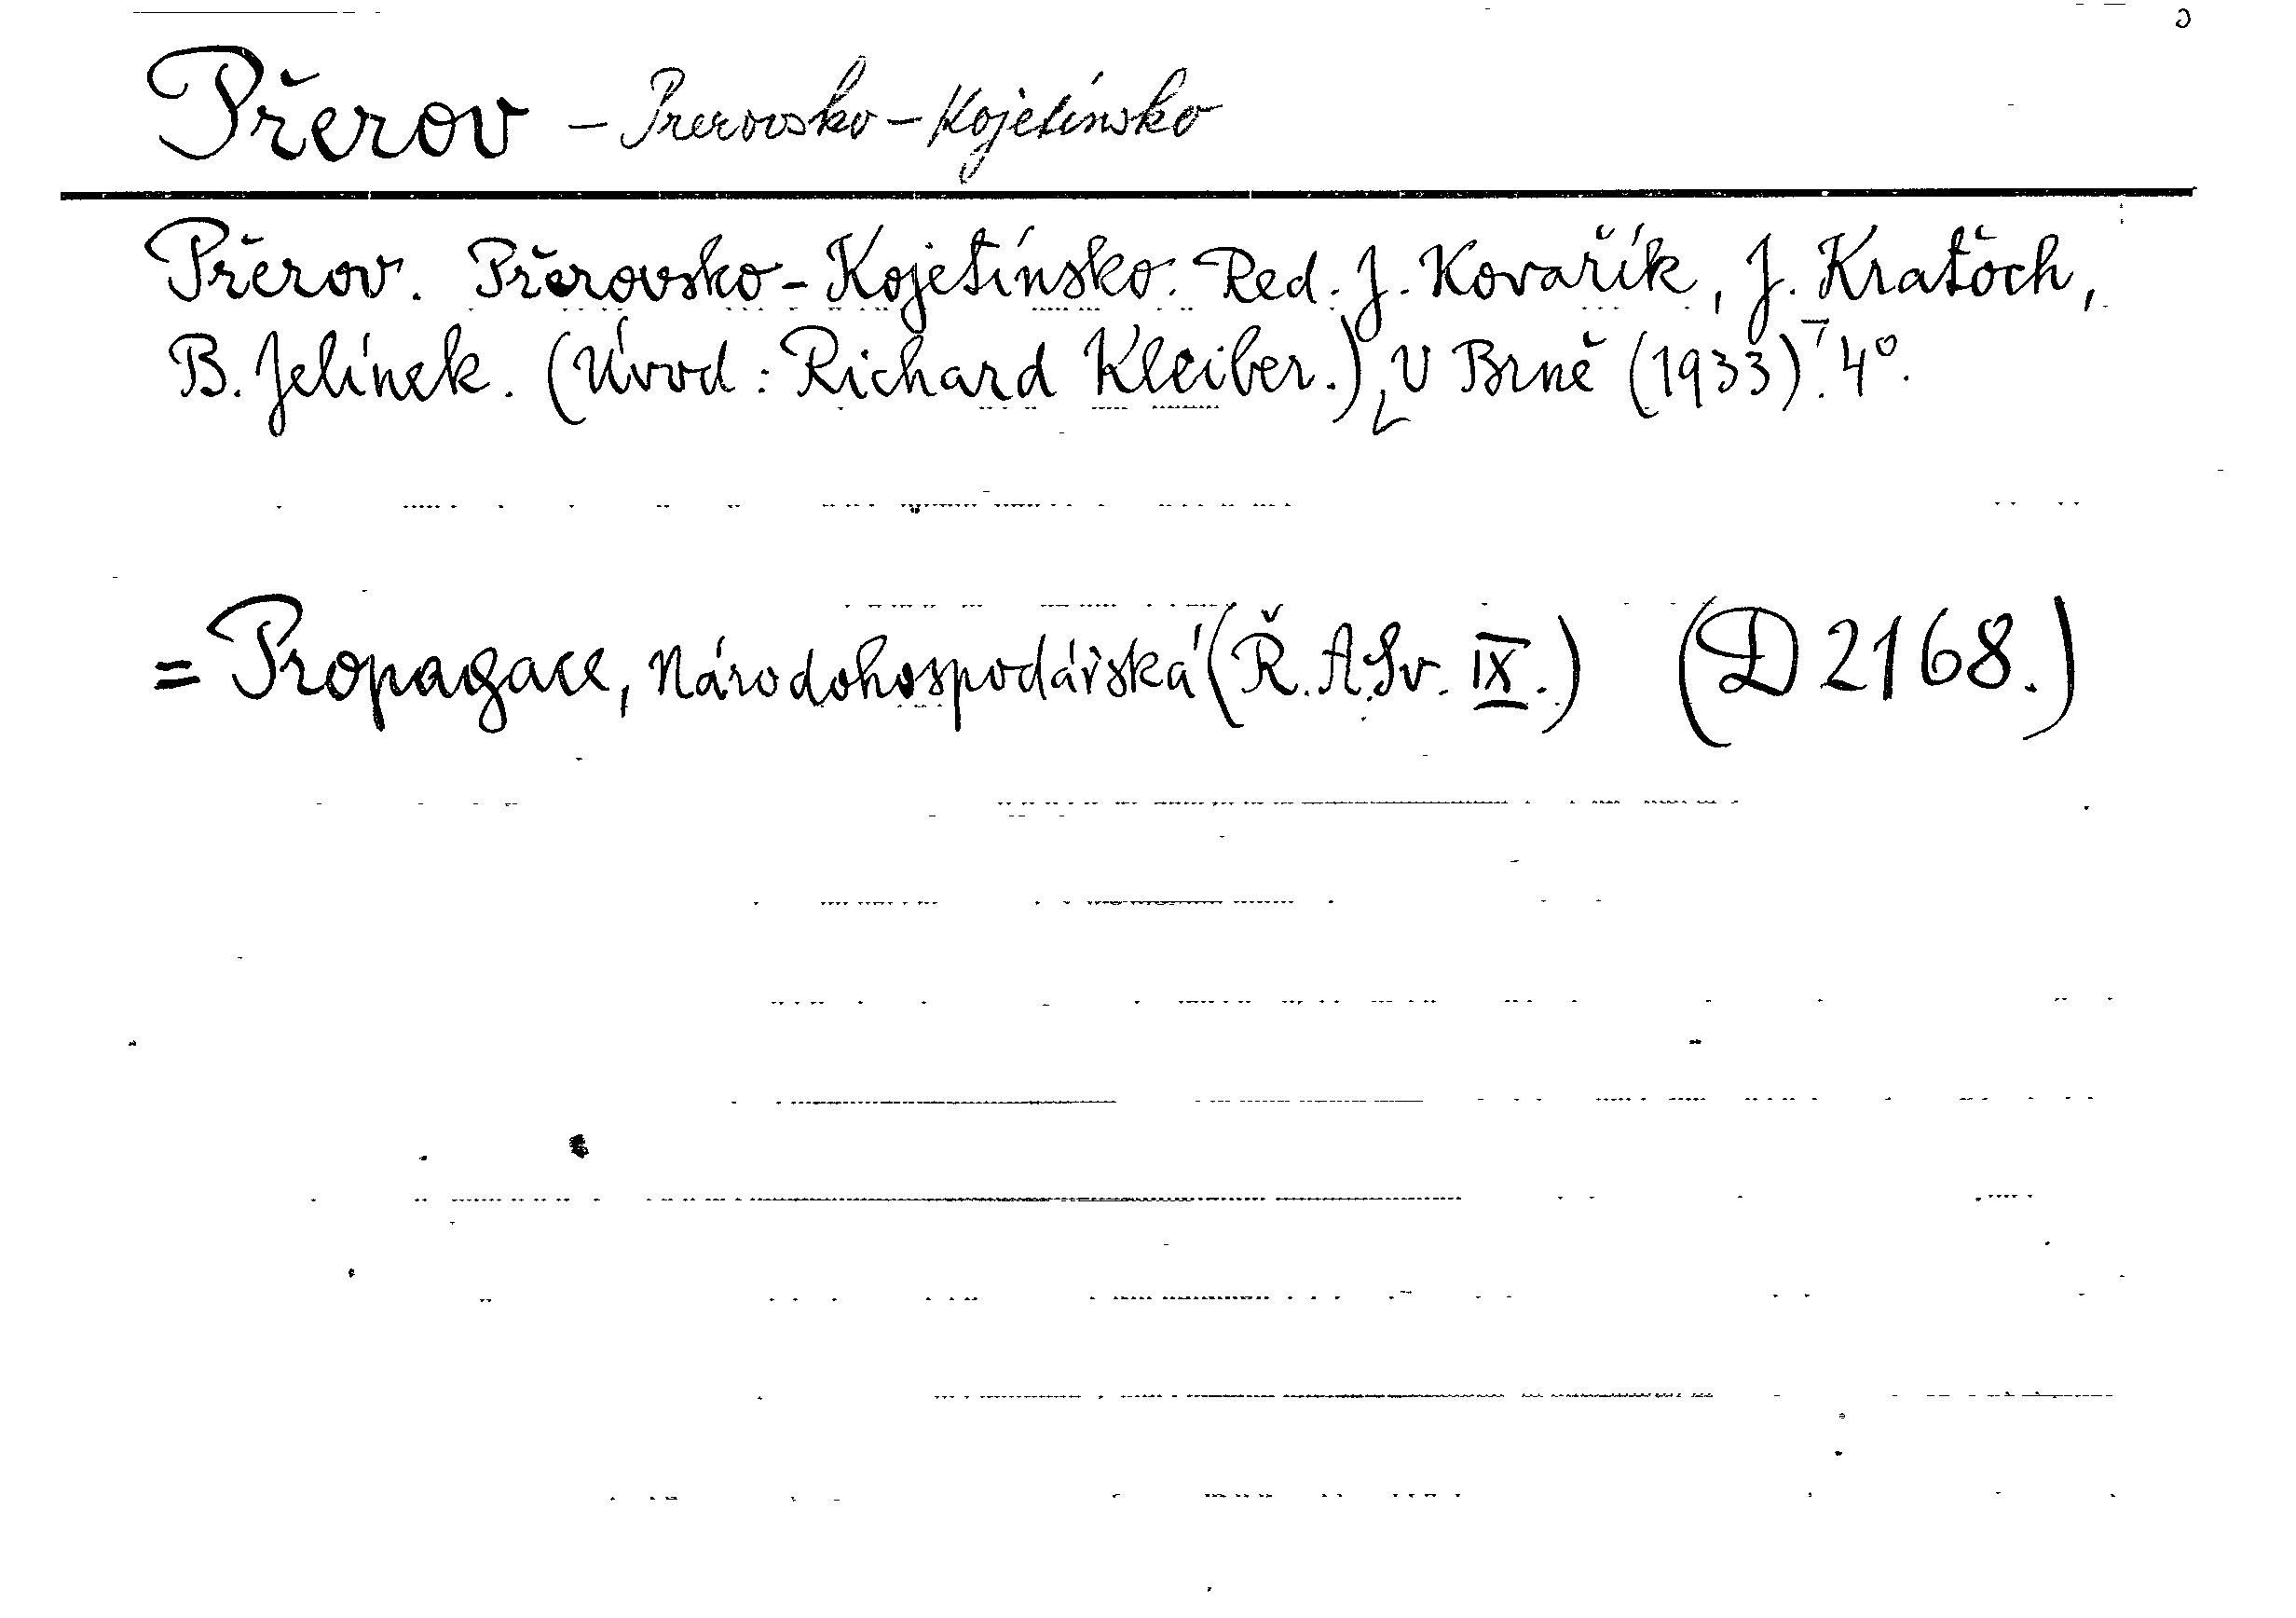 Přerov – Přerovsko-Kojetínsko
Přerov. Přerovsko-Kojetínsko. Red. J. Kovařík, J. Kratöch,
B. Jelínek. (Úvod: Richard Kleiber.) V Brně (1933). 4°.
= Propagace, Národohospodářská (Ř. A. Sv. IX.) (D 2168.)